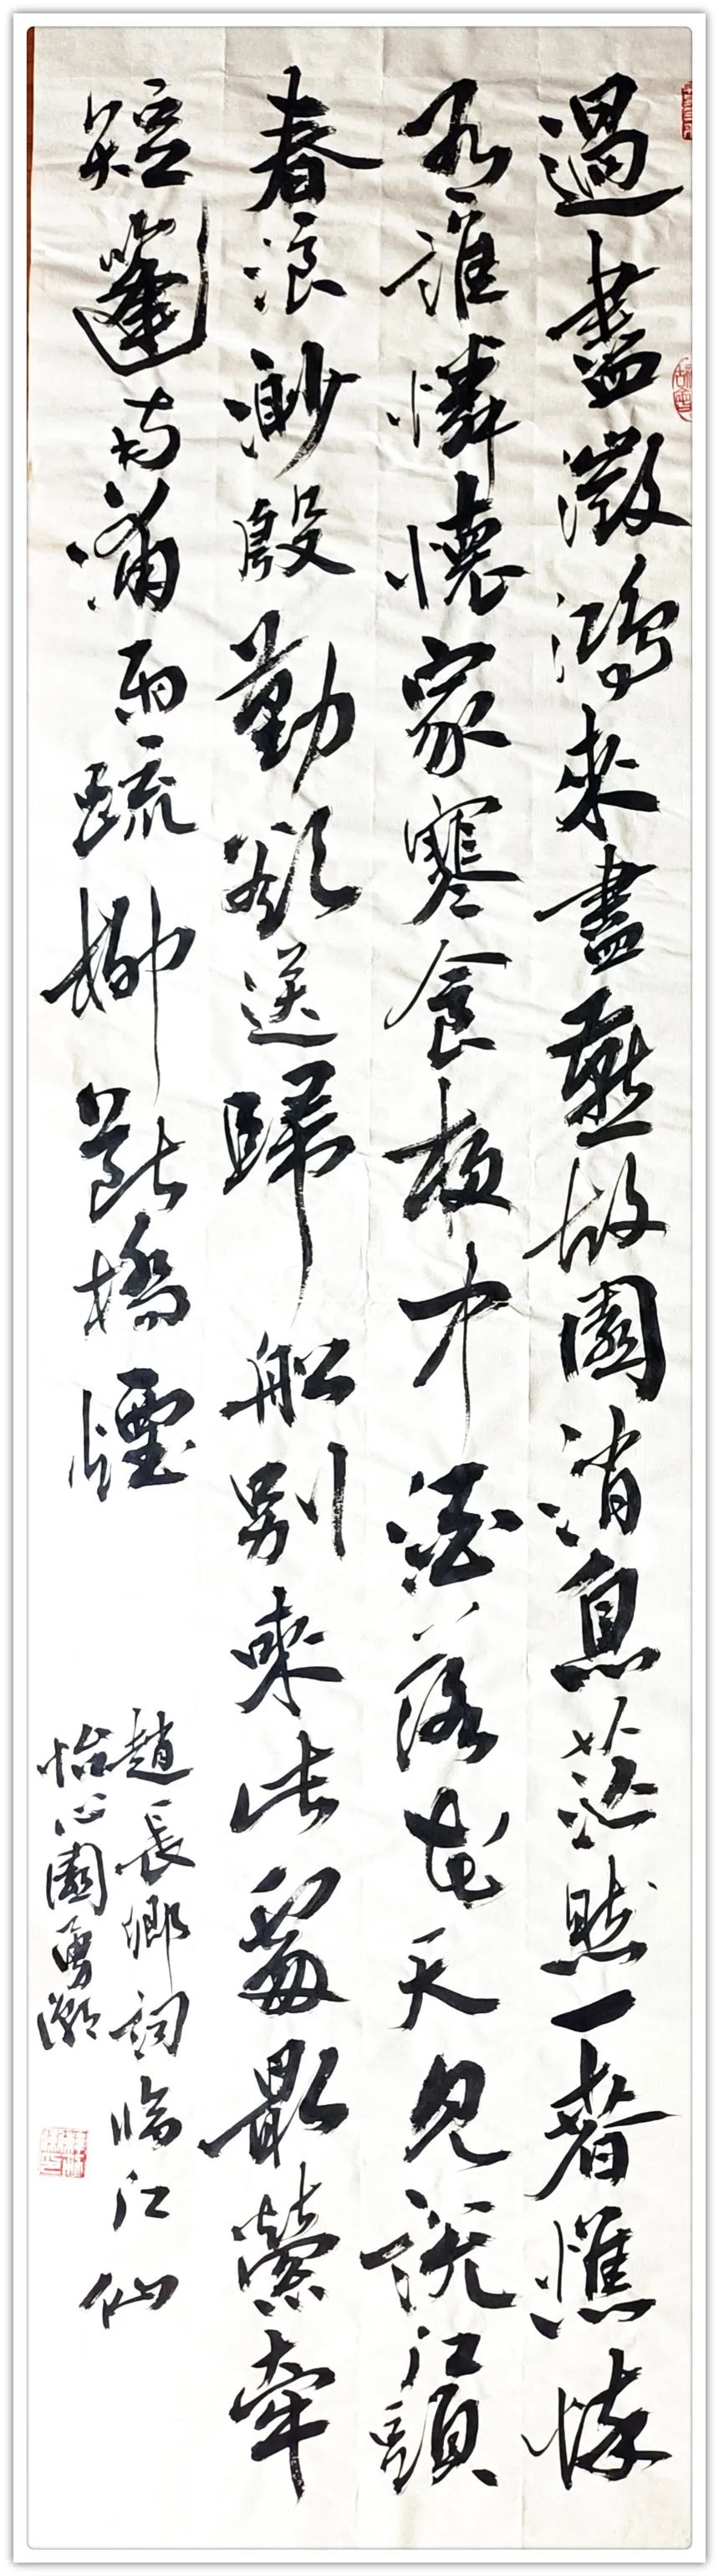 過盡徵鴻來盡燕故園消息茫然一春憔悴
有誰憐懷家寒食夜中酒落花天見說江頭
春浪渺殷勤欲送歸船別來此處最縈牽
短篷南浦雨疏柳斷橋煙
趙長卿詞臨江仙
怡心園勇灝